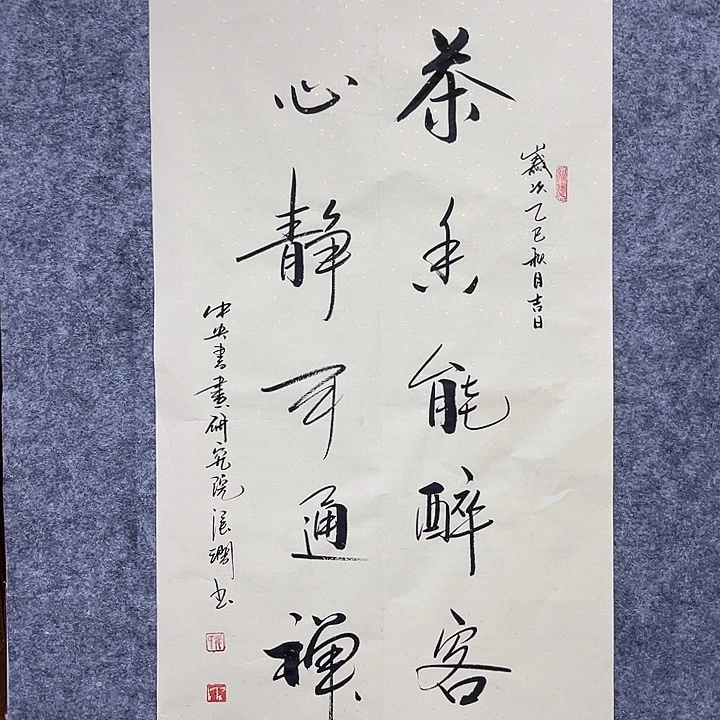 歲次乙巳秋月吉日
茶香能醉客
心静可通禅
中央書畫研究院 書